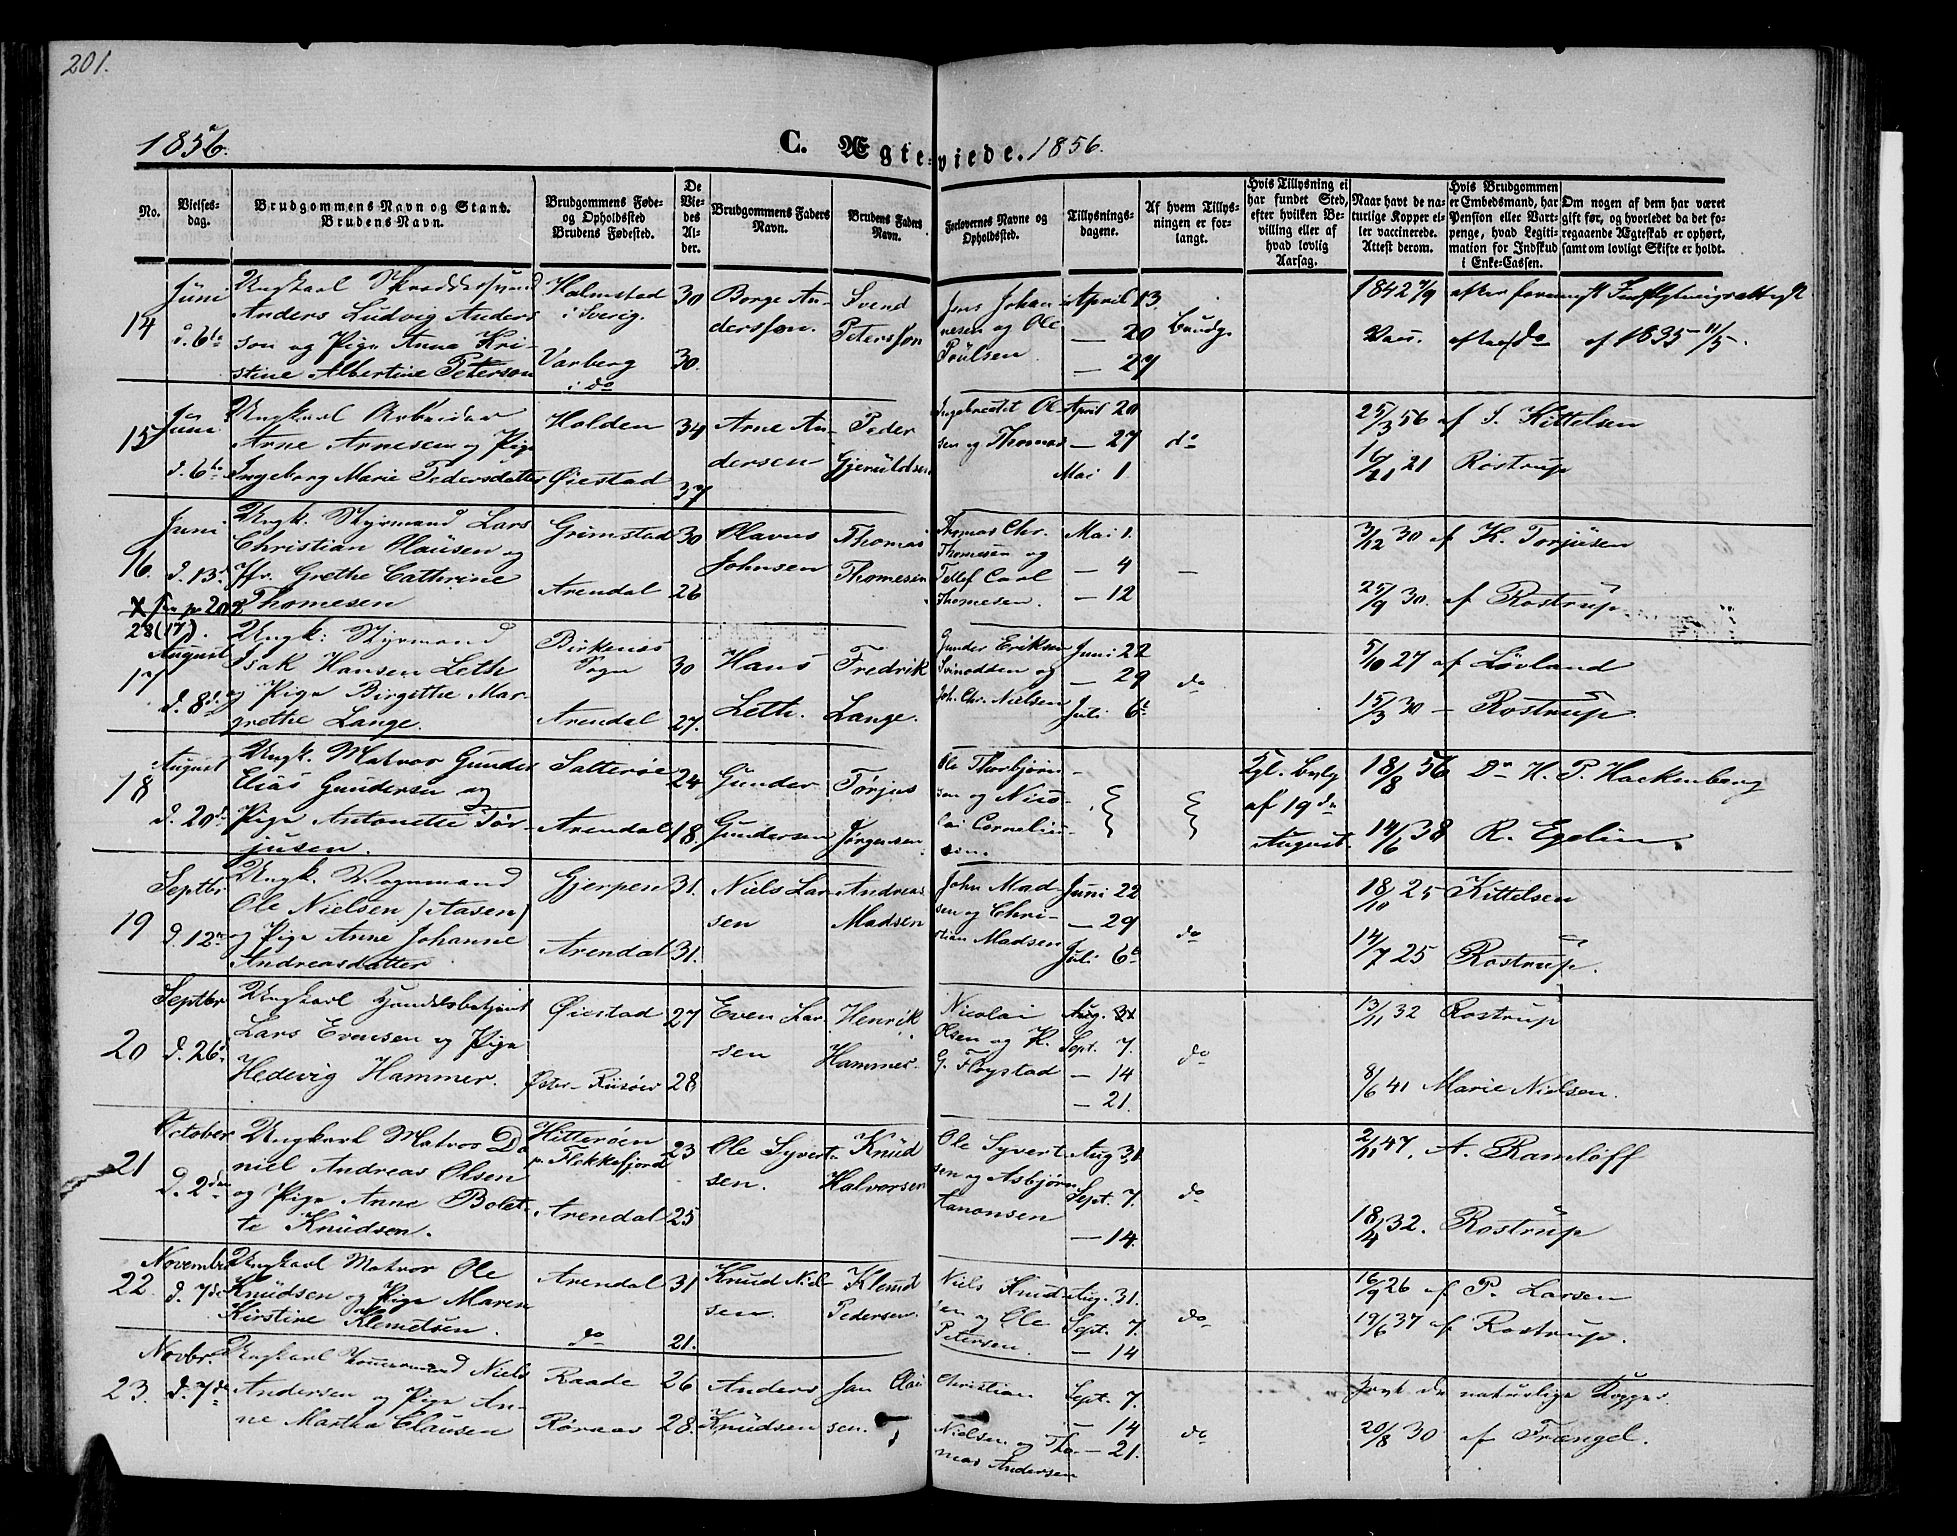 201.
1856.
C. Ægte-viede. 1856.
No.
Vielses-
dag.
Brudgommens Navn og Stand.
Brudens Navn.
Brudgommens Føde-
og Opholdssted
Brudens Fødested.
De
Vie-
des
Al-
der.
Brudgommens Faders
Navn.
Brudens Faders
Navn.
Forlovernes Navne og
Opholdssted.
Tillysnings-
dagene.
Af hvem Tillys-
ningen er for-
langt.
Hvis Tillysning ei
har fundet Sted,
efter hvilken Be-
villing eller af
hvad lovlig
Aarsag.
Naar havt de na-
turlige Kopper el-
ler vaccinerede.
Attest derom.
Hvis Brudgommen
er Embedsmand, har
Pension eller Vart-
penge, hvad Legiti-
mation for Indskud
i Enke-Cassen.
Om nogen af dem har været
gift før, og hvorledes da det fo-
regaaende Ægteskab er ophørt,
samt om lovligt Skifte er holdt.
14
Juni
d. 6te
Ungkarl Skræddersvend
Anders Ludvig Anders
son og Pige Anne Kri-
stine Albertine Peterson
Halmstad
i Sverig.
Varberg
i do
30
30.
Borge An-
dersson.
Svend
Petersson
Jens Johan
nesen og Ole
Poulsen.
April 13.
— 20
— 27
Brudg.
1842 7/9
af 1835 11/5.
15
Juni
d. 6te
Ungkarl Arbeider
Arne Arnesen og Pige
Ingeborg Marie Pedersdatter
Holden
Øiestad
34
37
Arne An-
dersen
Peder
Gjeruldsen
Ingebretet Ol-
sen og Thomas
April 20
— 27
Mai 1
do
25/3 56 af J. Kittelsen
16/11 21 Rostrup
16.
Juni
d. 13de
Ungk. Styrmand Lars
Christian Olausen og
Jfr. Grethe Cathrine
Thomesen
Grimstad
Arendal
30
26
Olavus
Johnsen
Thomas
Thomesen
Thomas Chr.
Thomesen og
Tellef Carl
Thomesen.
Mai 1.
— 4
— 12
—
3/12 30 af K. Torjusen
25/9 30. af Rostrup
28 (17).
17
August
d. 8de
Ungk: Styrmand
Isak Hansen Leth
og Pige Birgitte Mar-
grethe Lange.
Birkenæs
Sogn
Arendal
30
27.
Hans
Leth.
Fredrik
Lange.
Gunder Eriksen
Svinodden og
Joh. Chr. Nielsen
Juni 22
— 29
Juli 6te
do
5/10 27 af Løvland
15/3 30 — Rostrup.
18
August
d. 20de
Ungk. Matros Gunder
Elias Gundersen og
Pige Antonette Tor-
jusen.
Salterøe
Arendal
24
18.
Gunder
Gundersen
Torjus
Jørgensen.
Ole Thorbjørn-
sen og Nico-
lai Cornelius-
sen.
Kgl. Bevlg
af 19de
August.
18/8 56 Dr H. P. Hackenberg
14/6 38 R. Egelin.
19
Septbr
d. 12te
Ungk. Vognmand
Ole Nielsen (Aasen)
og Pige Anne Johanne
Andreasdatter
Gjerpen
Arendal
31.
31.
Niels Lar
sen
Andreas
Madsen
John Mad-
sen og Chri-
stian Madsen
Juni 22
— 29
Juli 6te
do
18/10 25 Kittelsen
14/7 25 Rostrup.
20
Septbr
d. 26de
Ungkarl Handelsbetjent
Lars Evensen og Pige
Hedevig Hammer.
Øiestad
Øster-Riisøer
27
28
Even Lar
sen
Henrik
Hammer.
Nicolai
Olsen og K.
G. Fløystad
Aug. 31
Sept. 7.
— 14
— 21.
do
13/11 32 Rostrup
8/6 41 Marie Nielsen.
21
October
d. 2den
Ungkarl Matros Da
niel Andreas Olsen
og Pige Anne Bolet-
te Knudsen.
Hitterøen
p. Flekkefjord
Arendal
23
25
Ole Syvert-
sen.
Knud
Halvorsen
Ole Syvert-
sen og Asbjørn
Aanonsen
Aug 31
Sept. 7.
— 14.
do
2/11 47. A. Ramløff
18/4 32. Rostrup
22
November
d. 7de
Ungkarl Matros Ole
Knudsen og Pige Maren
Kirstine Klemetsen.
Arendal
do
31
21.
Knud Niel-
sen.
Klemd
Pedersen.
Niels Knud
sen og Ole
Petersen.
Aug. 31.
Sept. 7.
— 14
do
16/9 26 af P. Larsen
19/6 37 af Rostrup.
23.
Novbr.
d. 7de
Ungkarl Tømmermand Niels
Andersen og Pige An-
ne Martha Clausen
Raade
Røraas
26
28.
Anders
Knudsen
Jan Clau
sen.
Christian
Nielsen og Tho-
mas Andersen
Sept. 7.
— 14
— 21.
do
havt de naturlige Kopper
20/8 30 af Frængel.